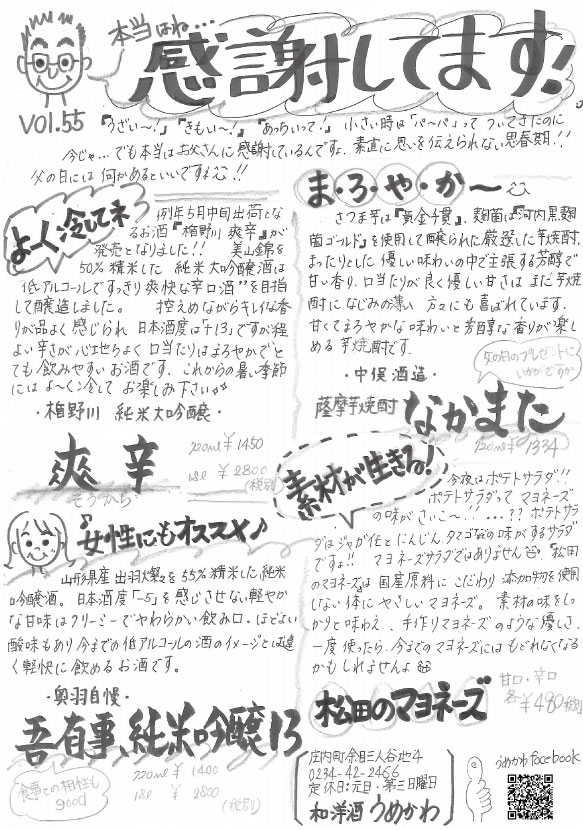 本当はね…
感謝してます!
VOl.55
『うざい〜!』『きもい〜!』『あっちいって!』 小さい時は「パーパ」って ついてきたのに
今じゃ…でも本当はお父さんに感謝しているんですよ.素直に思いを伝えられない思春期!!
父の日には何かあるといいですネ!!
よ〜く冷してネ
例年5月中旬出荷とな
るお酒『楯野川 爽辛』が
発売となりました!! 美山錦を
50%精米した 純米大吟醸酒は
低アルコールですっきり爽快な辛口酒"を目指
して醸造しました。 控えめながらキレイな香
りが品よく感じられ 日本酒度は「+13」ですが程
よい辛さが心地よく口当たりはまろやかでと
ても飲みやすいお酒です.これからの暑い季節
には よ〜く冷して お楽しみ下さい
・楯野川 純米大吟醸・
爽辛
そうから
720ml ¥1450
1.8l ¥2800
(税別)
♪女性にもオススメ♪
山形県産 出羽燦々を55%精米した純米
吟醸酒。 日本酒度「-5」を感じさせない軽やか
な甘味はクリーミーでやわらかい飲み口・ほどよい
酸味もあり今までの低アルコールの酒のイメージとは遠
く軽快に飲めるお酒です。
・奥羽自慢・
吾有事、純米吟醸13
720ml ¥ 1400
1.8l ¥ 2800
(税別)
食事との相性も
good
ま・ろ・や・か〜
さつま芋は『黄金千貫』、麹菌は『河内黒麹
菌ゴールド』を使用して醸られた厳選した芋焼酎.
まったりとした優しい味わいの中で主張する芳醇で
甘い香り.口当たりが良く優しい甘さは まだ芋焼
酎になじみの薄い 方々にも喜ばれています.
甘くてまろやかな味わいと芳醇な香りが楽し
める芋焼酎です.
父の日のプレゼントに
いかがですか
・中俣酒造・
薩摩芋焼酎 なかまた
720ml ¥1334
素材が生きる!
今夜はポテトサラダ!!
ポテトサラダって マヨネーズ
の味がさいこ〜!! …??ポテトサラ
ダはジャガ化とにんじん、タマゴなどの味がするサラダ
ですよ!! マヨネーズサラダではありません 『松田
のマヨネーズ』は 国産原料に こだわり 添加物を使用
しない体にやさしいマヨネーズ。 素材の味をしっ
かりと味わえ、 手作りマヨネーズのような優しさ.
一度 使ったら、今までのマヨネーズには もどれなくなる
かもしれませんよ
松田のマヨネーズ
甘口・辛口
各 ¥480税別
庄内町余目三人谷地4
0234-42-2466
定休日:元日・第三日曜日
和洋酒うめかわ
うめかわfacebook